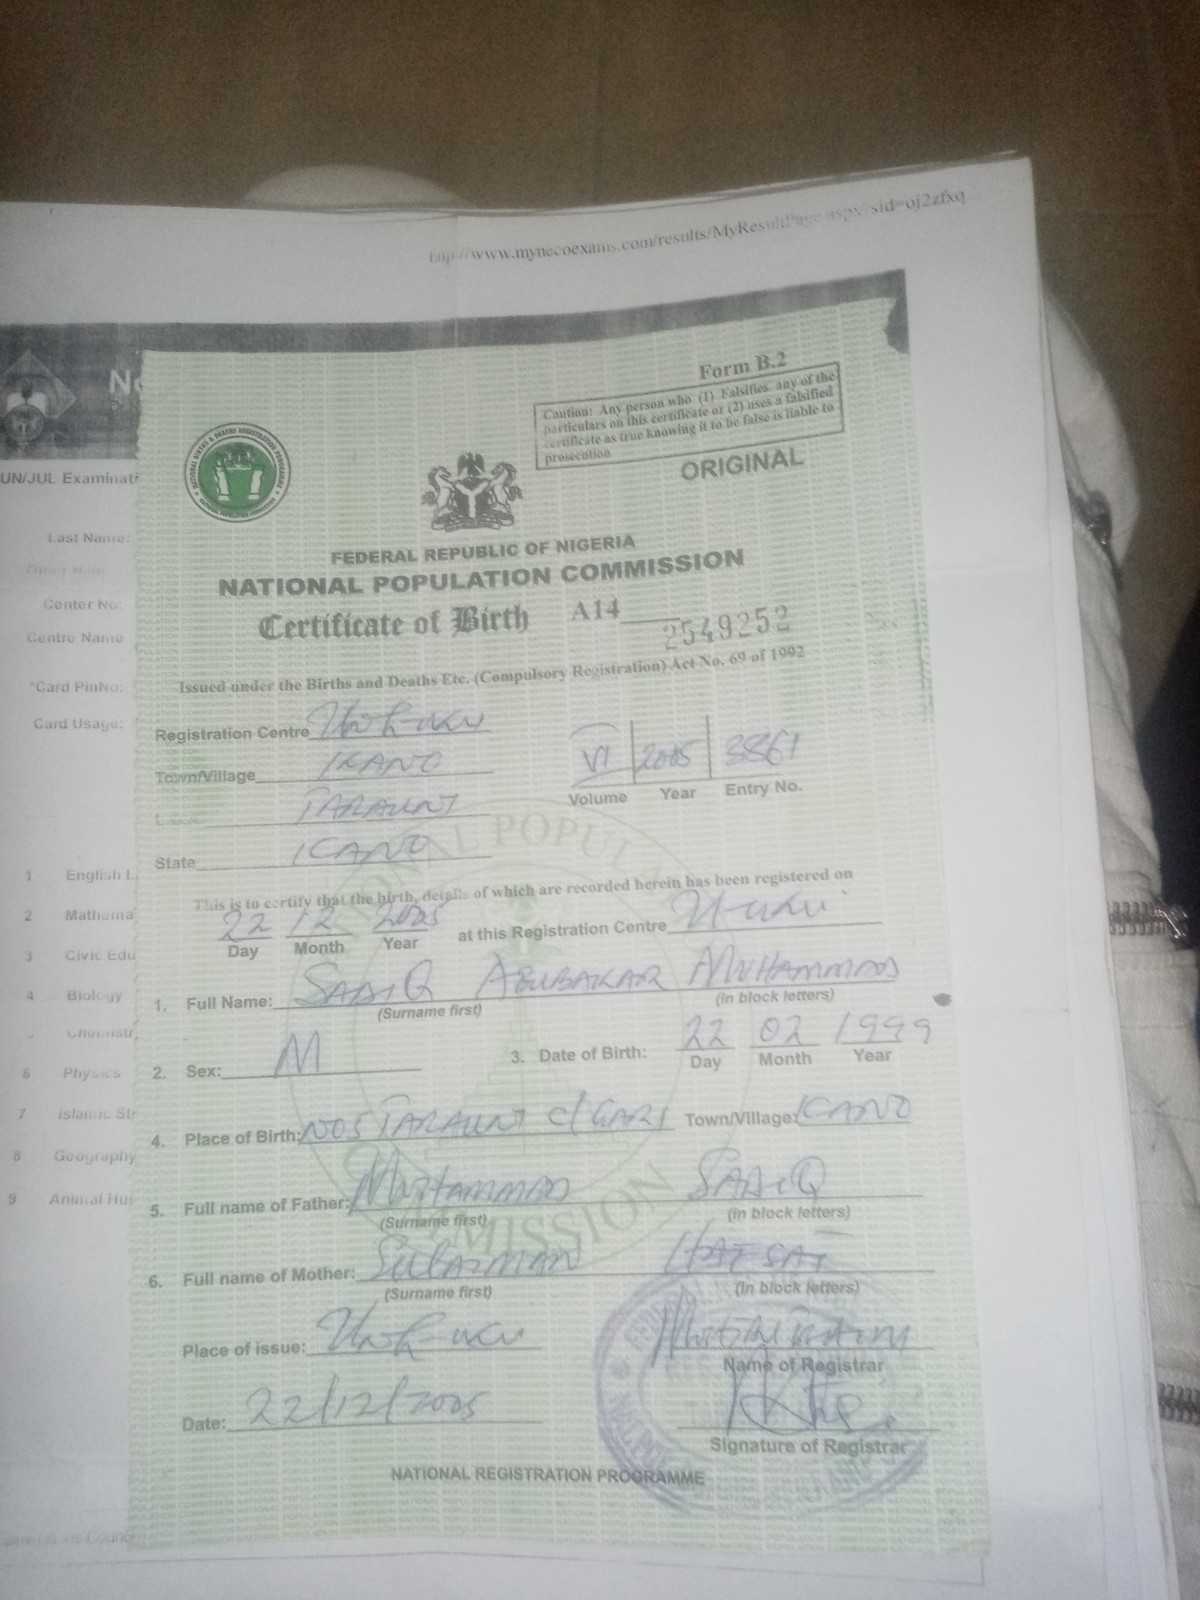 http://www.mynecoexams.com/results/MyResultPage.aspx?sid=oj2zfxq
Form B.2
Caution: Any person who (1) Falsifies any of the
particulars on this certificate or (2) uses a falsified
certificate as true knowing it to be false is liable to
prosecution
ORIGINAL
FEDERAL REPUBLIC OF NIGERIA
NATIONAL POPULATION COMMISSION
Certificate of Birth A14 2549252
Issued under the Births and Deaths Etc. (Compulsory Registration) Act No. 69 of 1992
Registration Centre
Town/Village KANO
VI 2005 3861
Volume Year Entry No.
TARAUNI
State KANO
This is to certify that the birth, details of which are recorded herein has been registered on
22 12 2005
Day Month Year at this Registration Centre
1. Full Name: SADIQ ABUBAKAR MUHAMMAD
(Surname first) (in block letters)
2. Sex: M 3. Date of Birth: 22 02 1999
Day Month Year
4. Place of Birth: NO5 TARAUNI C/GARI Town/Village: KANO
5. Full name of Father: MUHAMMAD SADIQ
(Surname first) (in block letters)
6. Full name of Mother: SULAIMAN HAFSAT
(Surname first) (in block letters)
Place of issue:
Name of Registrar
Date: 22/12/2005
Signature of Registrar
NATIONAL REGISTRATION PROGRAMME
UN/JUL Examinati
Last Name:
Center No:
Centre Name
*Card PinNo:
Card Usage:
1 English L
2 Mathema
3 Civic Edu
4 Biology
Chemistr
6 Physics
7 Islamic St
8 Geography
9 Animal Hus